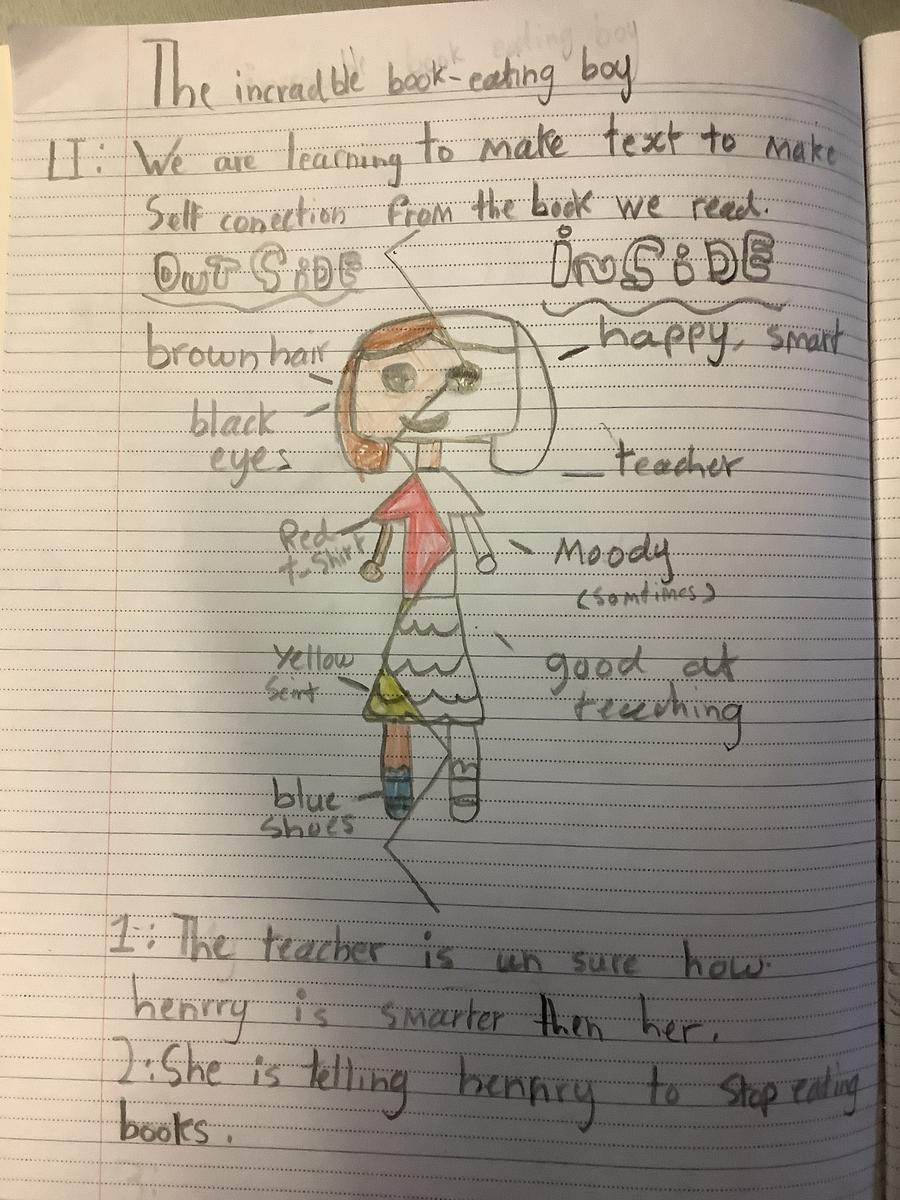 The incradble book-eating boy
LI: We are learning to make text to make
Self conection from the book we read.
OUTSiDE
iNSiDE
brown hair
happy, smart
black
eyes
teacher
Red
t-shirt
Moody
(somtimes)
yellow
good at
teaching
blue
shoes
1: The teacher is un sure how
henrry is smarter then her.
2: She is telling henrry to stop eating
books.